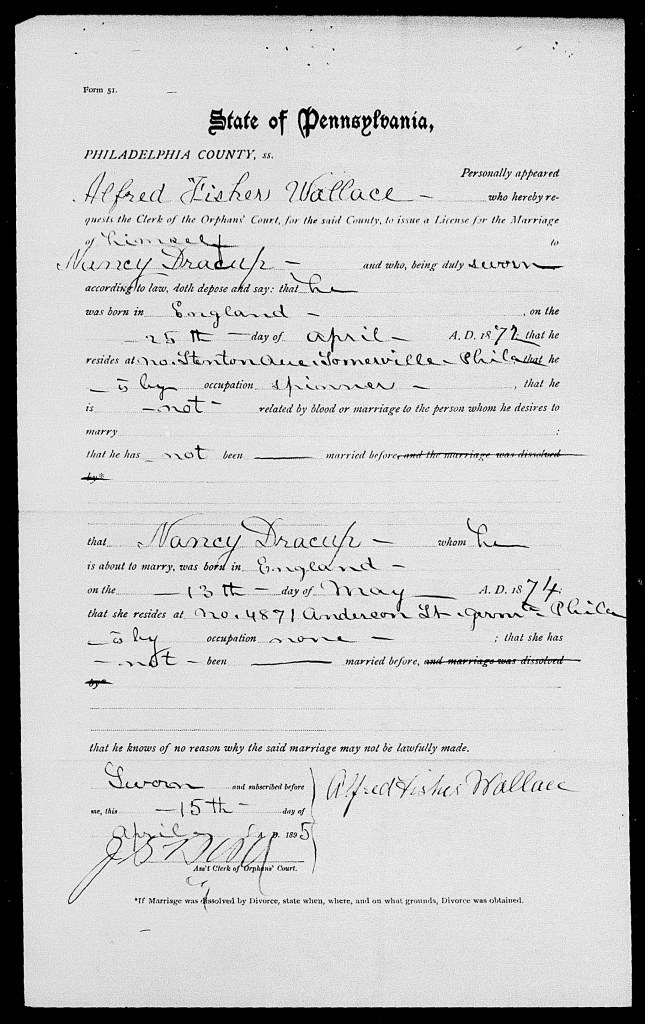 Form 51.
State of Pennsylvania,
PHILADELPHIA COUNTY, ss.
Personally appeared
Alfred Fisher Wallace – who hereby re-
quests the Clerk of the Orphans' Court, for the said County, to issue a License for the Marriage
of himself to
Nancy Dracup – and who, being duly sworn
according to law, doth depose and say: that he
was born in England – , on the
– 25th – day of April – A. D. 1872 that he
resides at no. Stenton Ave. Somerville – Phila that he
is by occupation spinner – , that he
is – not – related by blood or marriage to the person whom he desires to
marry :
that he has not been —— married before, and the marriage was dissolved
by*
that Nancy Dracup – whom he
is about to marry, was born in England –
on the – 13th – day of May — A. D. 1874:
that she resides at no. 4871 Anderson St. Germt. Phila
is by occupation none – : that she has
– not – been —— married before, and marriage was dissolved
by*
that he knows of no reason why the said marriage may not be lawfully made.
Sworn and subscribed before
me, this – 15th – day of
April A. D. 1895
Alfred Fisher Wallace
Ass't Clerk of Orphans' Court.
*If Marriage was dissolved by Divorce, state when, where, and on what grounds, Divorce was obtained.